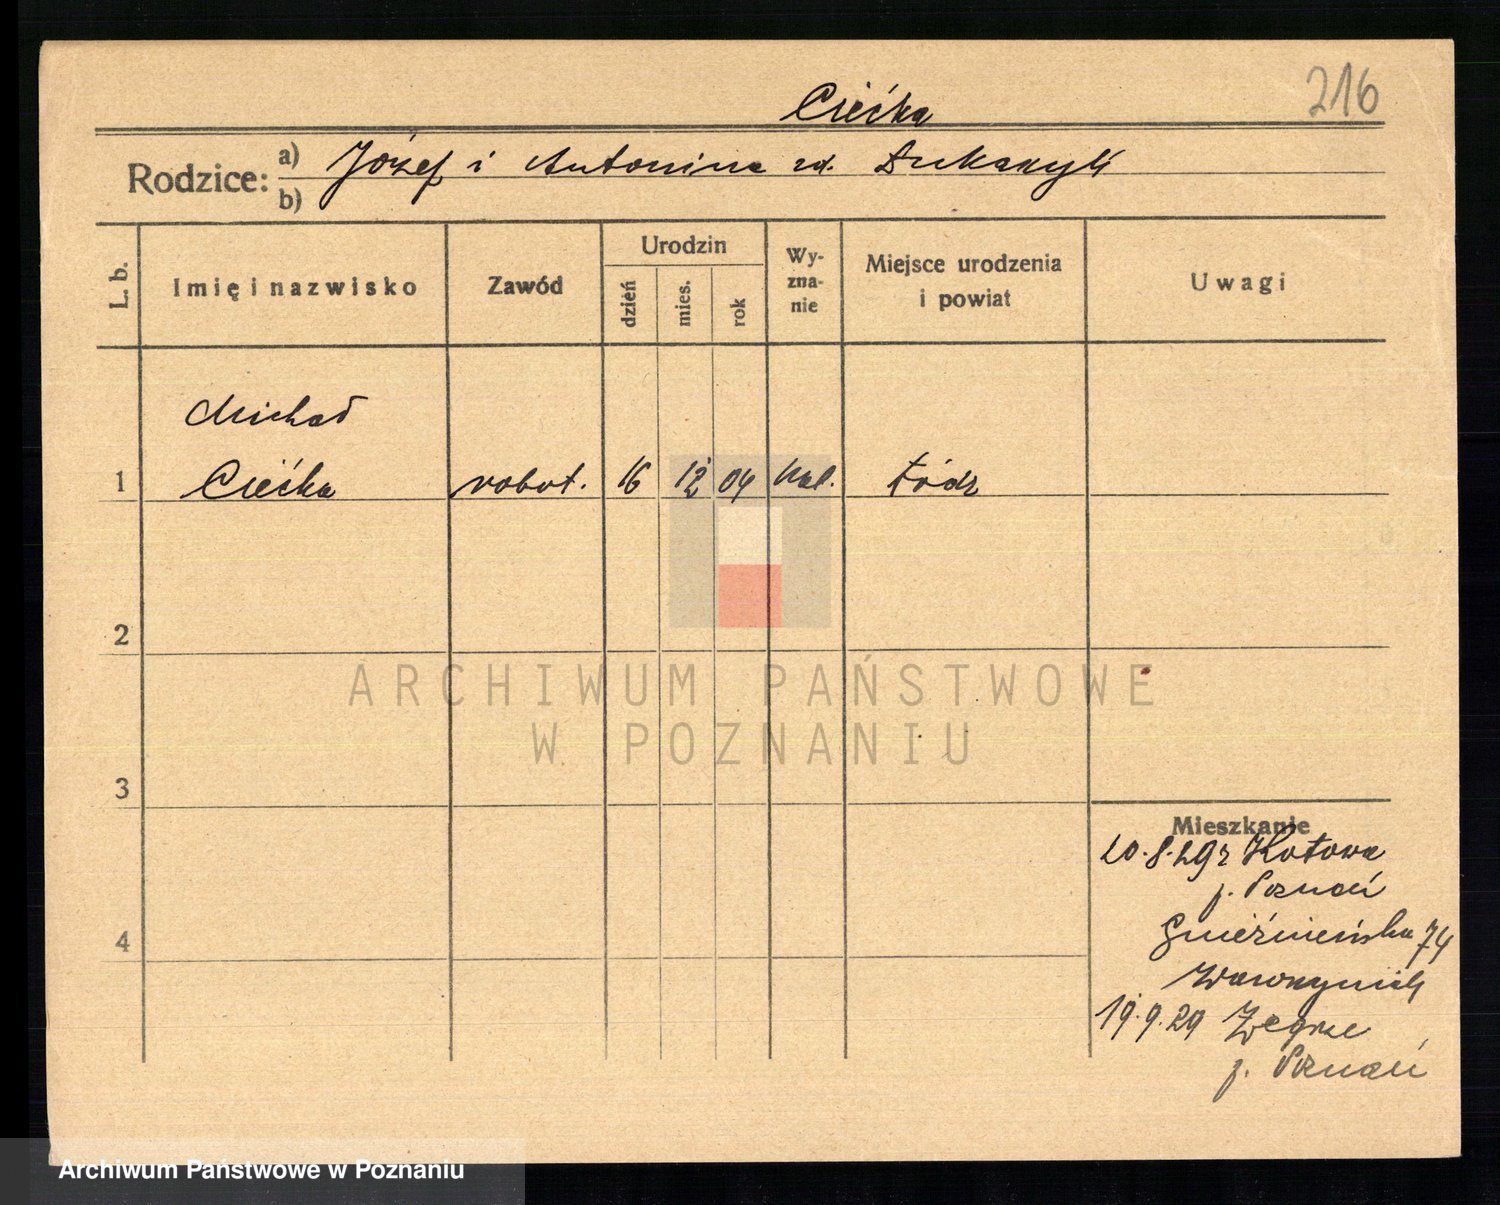 216
Ciećka
Rodzice: a) Józef i Antonina zd.
b)
L. b.
Imię i nazwisko
Zawód
Urodzin
dzień
mies.
rok
Wy-
zna-
nie
Miejsce urodzenia
i powiat
Uwagi
Michał
1 Ciećka robot. 16 12 04 kat. Łódź
2
3
4
Mieszkanie
20.8.29r Kotowo
p. Poznań
Gnieźnieńska 74
19.9.29 Żegrze
p. Poznań
ARCHIWUM PAŃSTWOWE
W POZNANIU
Archiwum Państwowe w Poznaniu